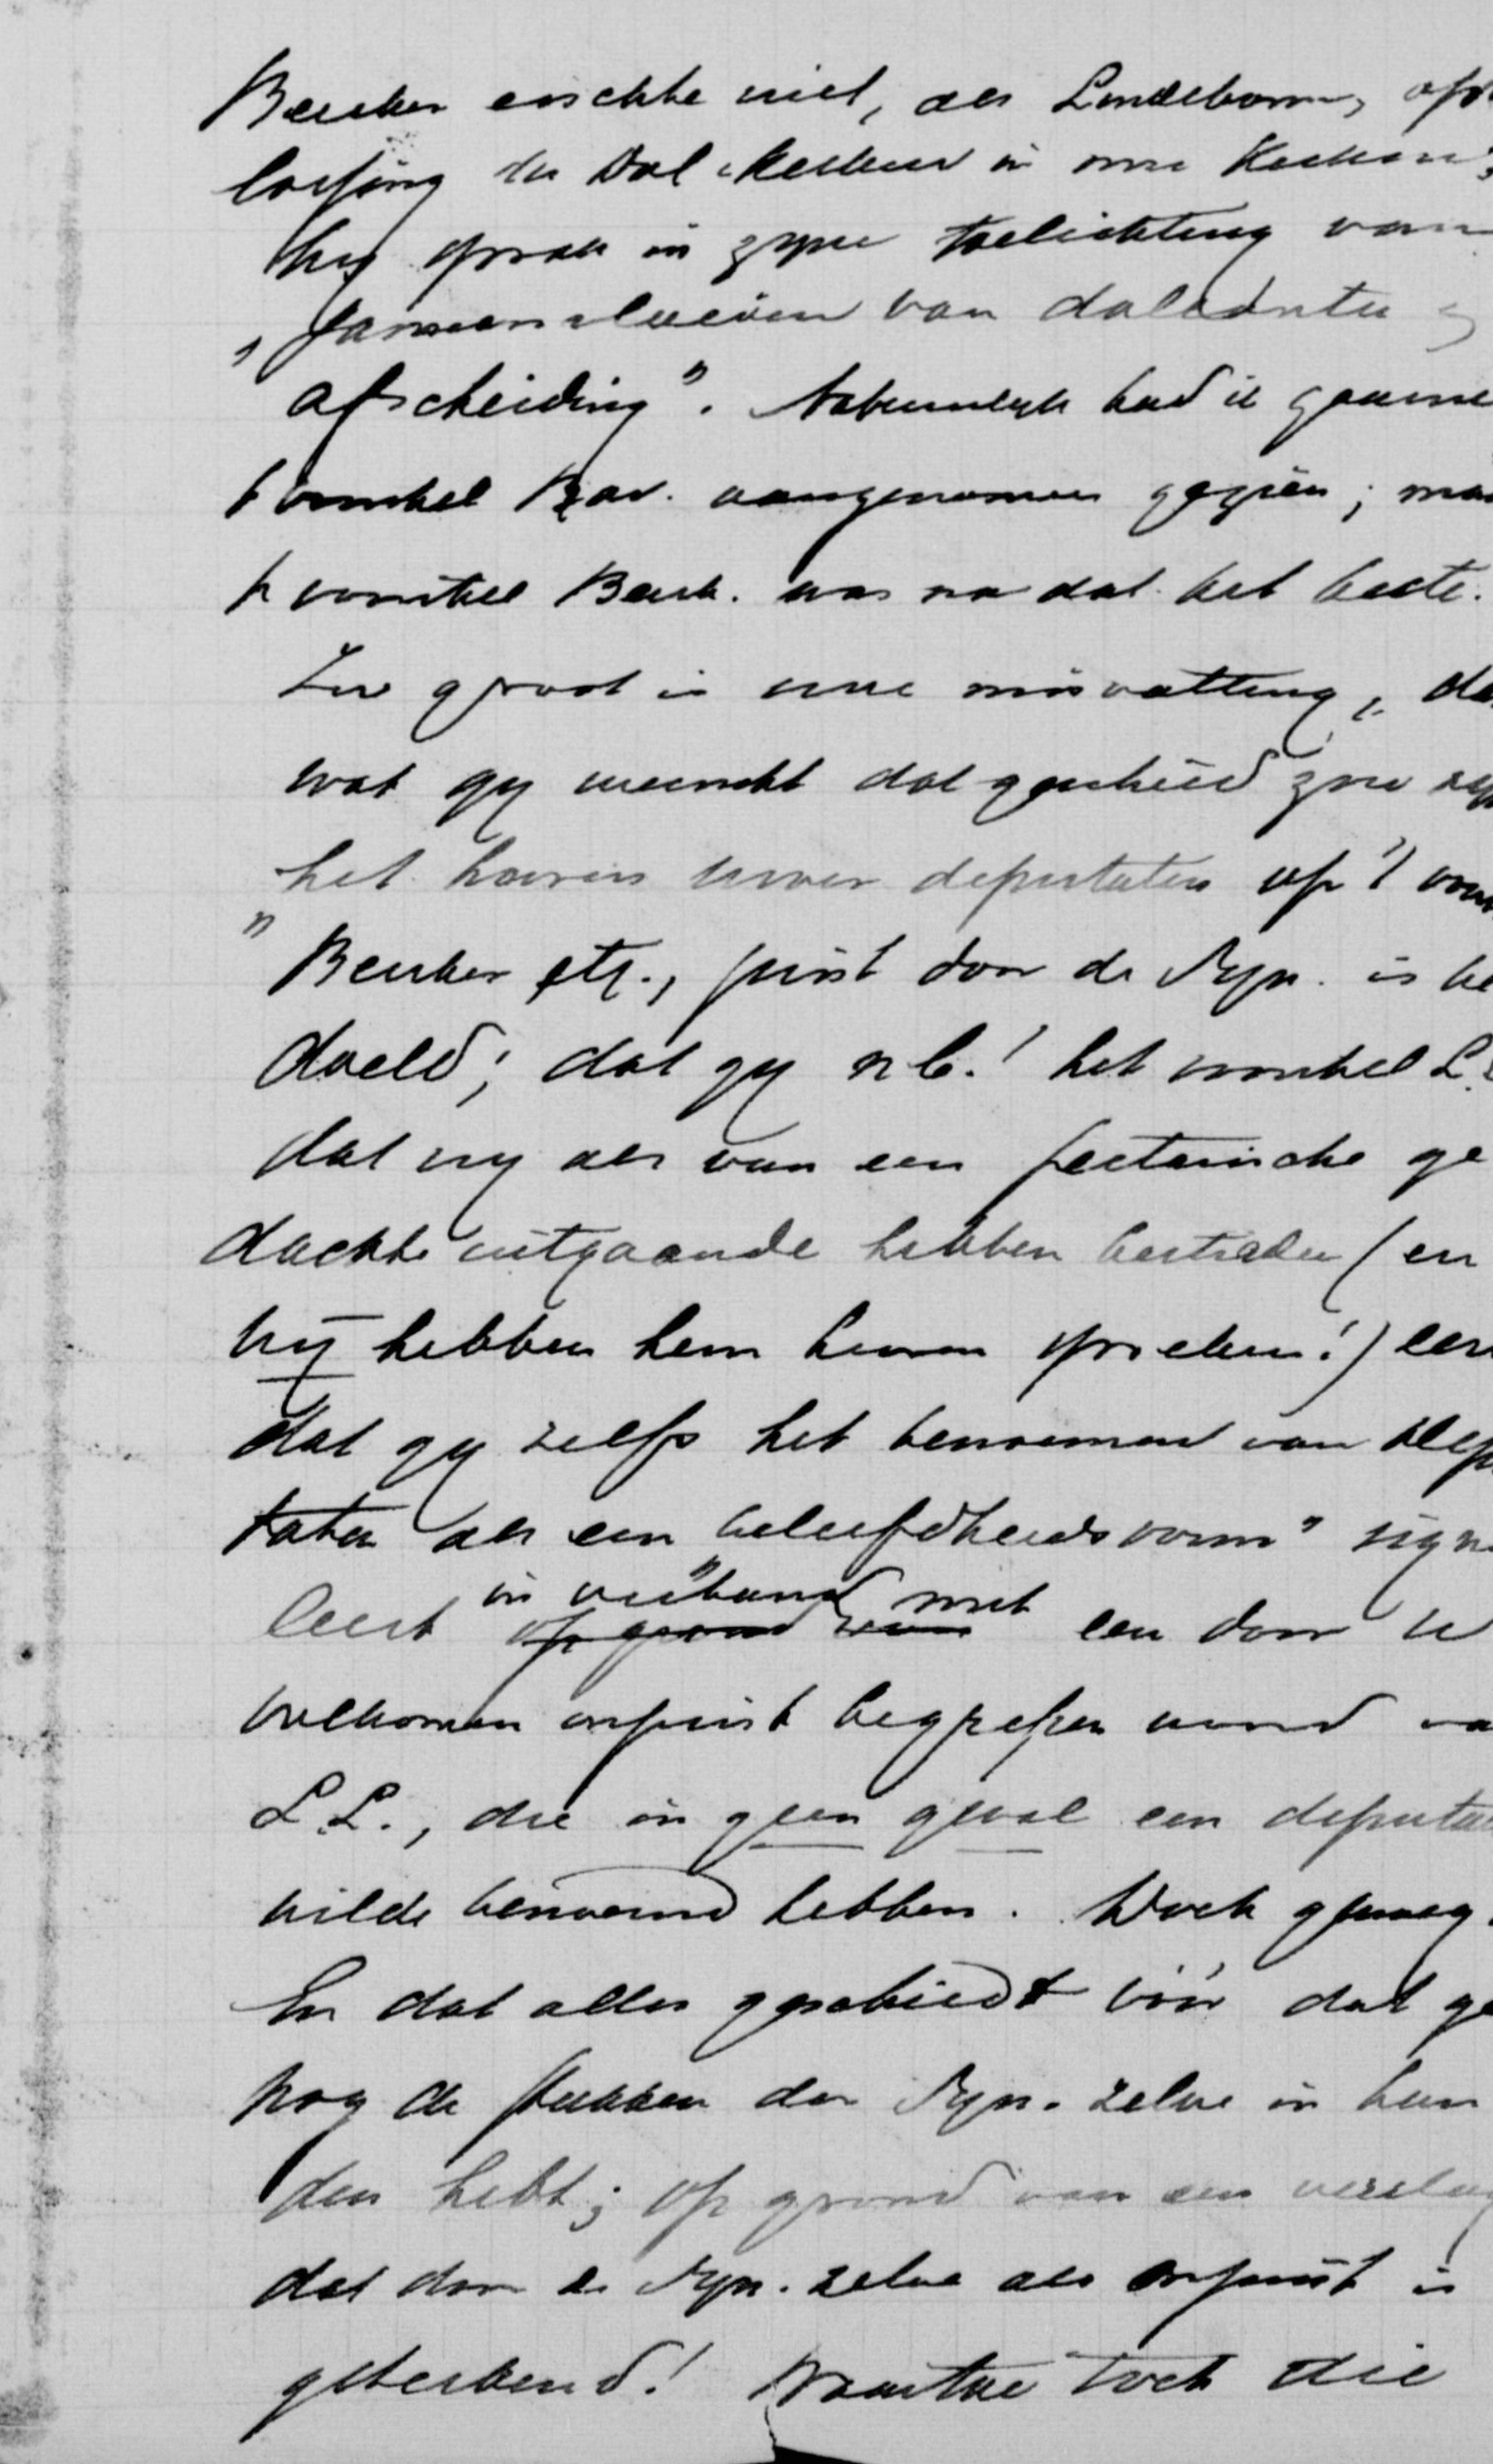 Beuker eischte niet, als Lindeboom, op
lossing der Dol. kerken in onze Kerken;
hij sprak in zijne toelichting van
„ van doleantie
afscheiding”. Natuurlijk had ik gaarne
t voorstel Bav. aangenomen gezien; maa
't voorstel Beuk. was na dat het beste.
Zoo groot is uwe misvatting, da
wat gij wenscht dat geschied zou zijn
het hooren uwer deputaten op 't voor
„Beuker etc., juist door de Syn. is be
doeld; dat gij n.b.! het voorstel L.
dat wij als van een sectarische ge
dachte uitgaande hebben bestreden (en
wij hebben hem hooren spreken!)
dat gij zelfs het benoemen van dep
taten als een „beleefdheidsvorm” signa
leert in verband met een door U
volkomen onjuist begrepen woord va
L.L., die in geen geval een deputa
wilde benoemd hebben. Doch genoeg.
En dat alles geschiedt vóór dat ge
nog de stukken der Syn. zelve in han
den hebt; op grond van een verslag
dat door de Syn. zelve als onjuist is
getekend! Waartoe toch die